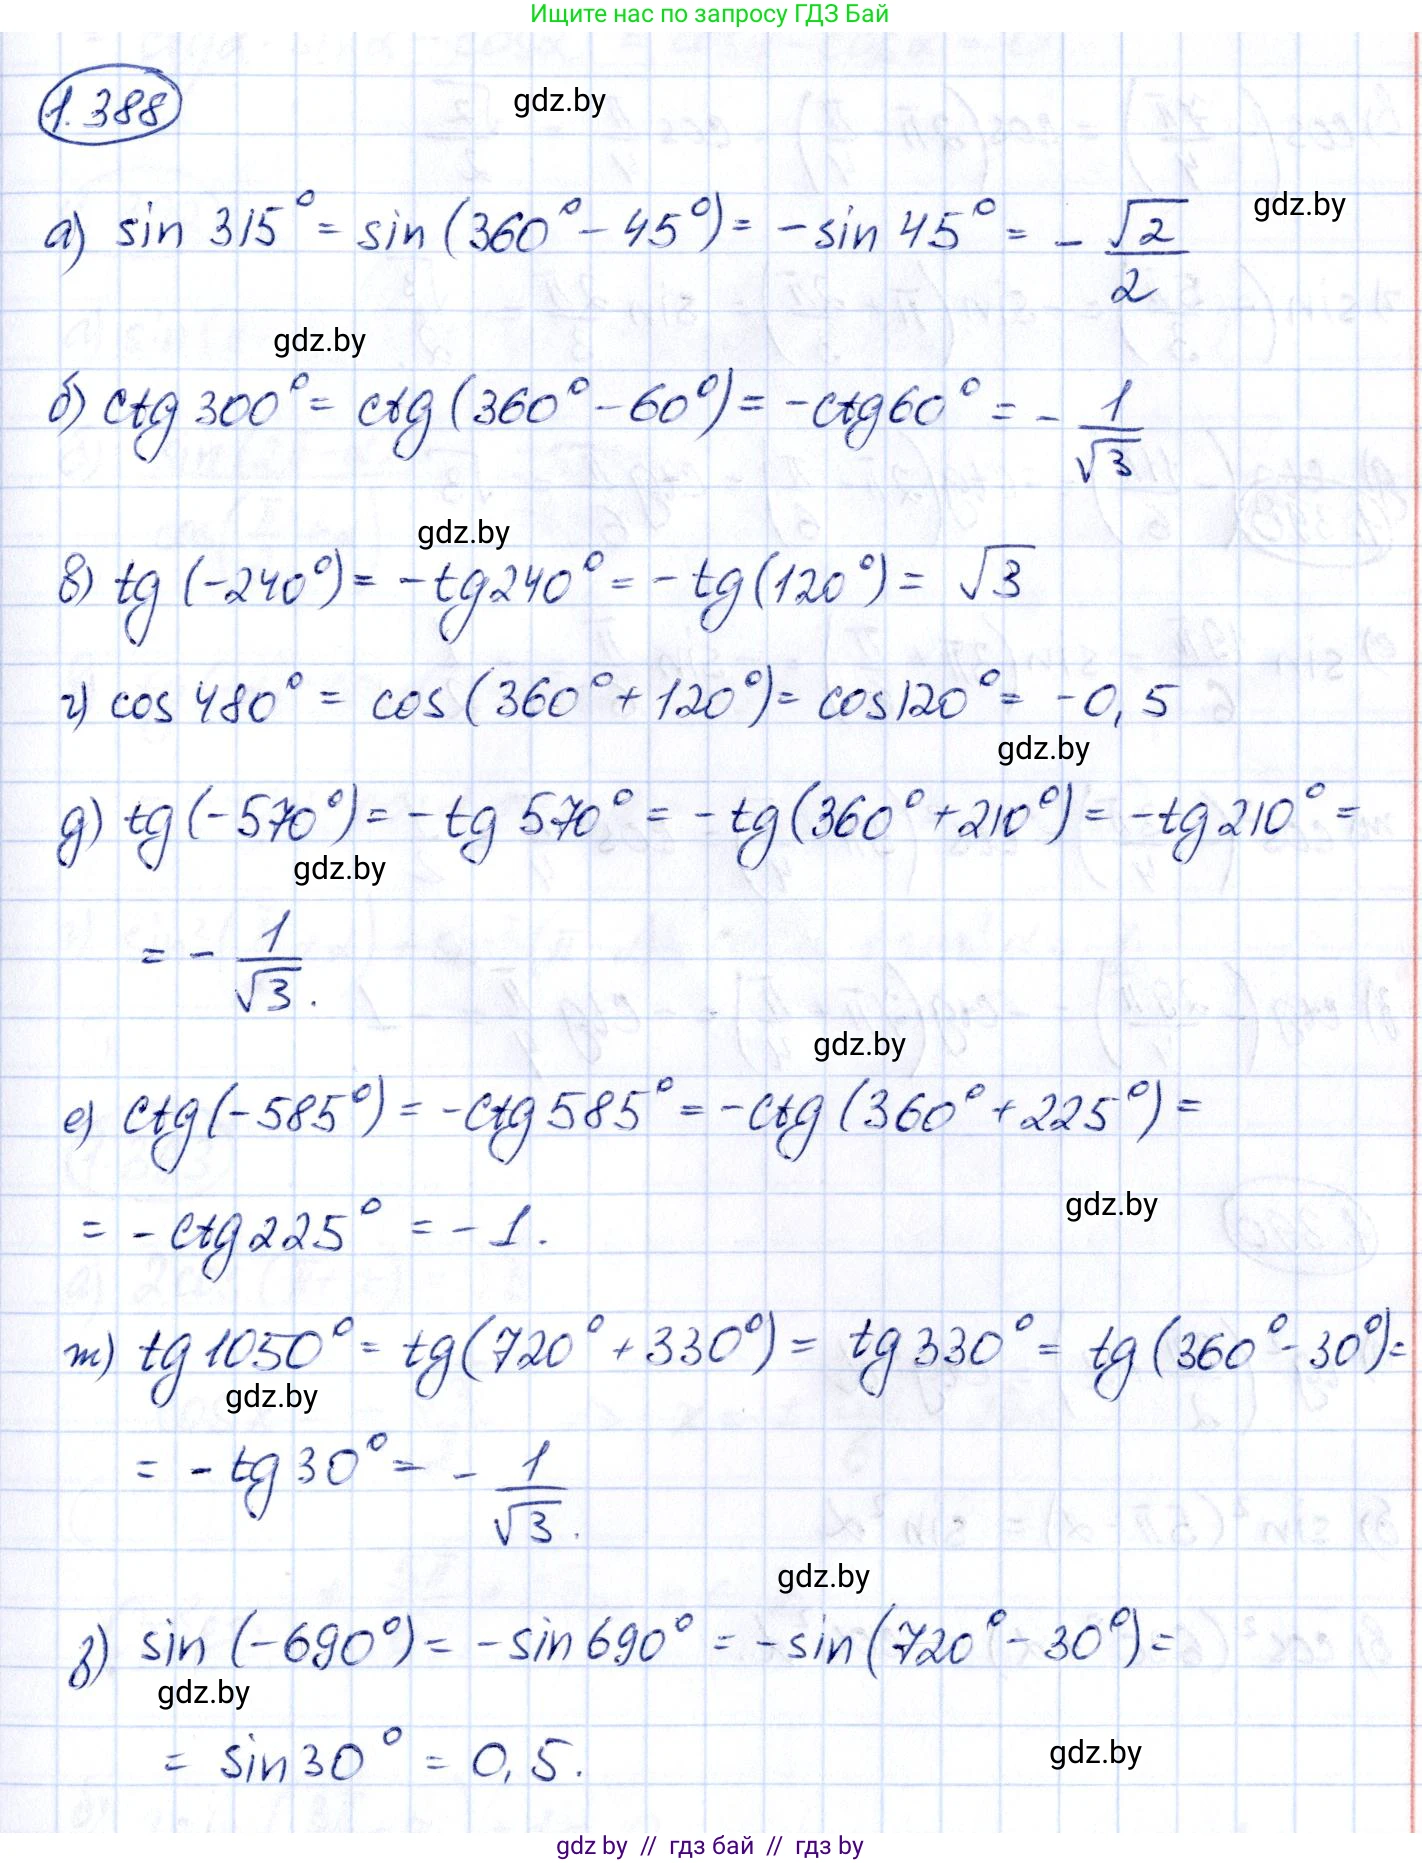 Ищите нас по запросу ГДЗ Бай
1.388
gdz.by
а) sin 315° = sin (360° - 45°) = - sin 45° = - √2/2
gdz.by
gdz.by
б) ctg 300° = ctg (360° - 60°) = - ctg 60° = - 1/√3
gdz.by
в) tg (-240°) = - tg 240° = - tg (120°) = √3
г) cos 480° = cos (360° + 120°) = cos 120° = -0,5
gdz.by
д) tg (-570°) = - tg 570° = - tg (360° + 210°) = - tg 210° =
gdz.by
= - 1/√3.
gdz.by
е) ctg (-585°) = - ctg 585° = - ctg (360° + 225°) =
gdz.by
= - ctg 225° = - 1.
ж) tg 1050° = tg (720° + 330°) = tg 330° = tg (360° - 30°) =
gdz.by
= - tg 30° = - 1/√3.
gdz.by
з) sin (-690°) = - sin 690° = - sin (720° - 30°) =
gdz.by
= sin 30° = 0,5.
gdz.by
gdz by // гдз бай // гдз by